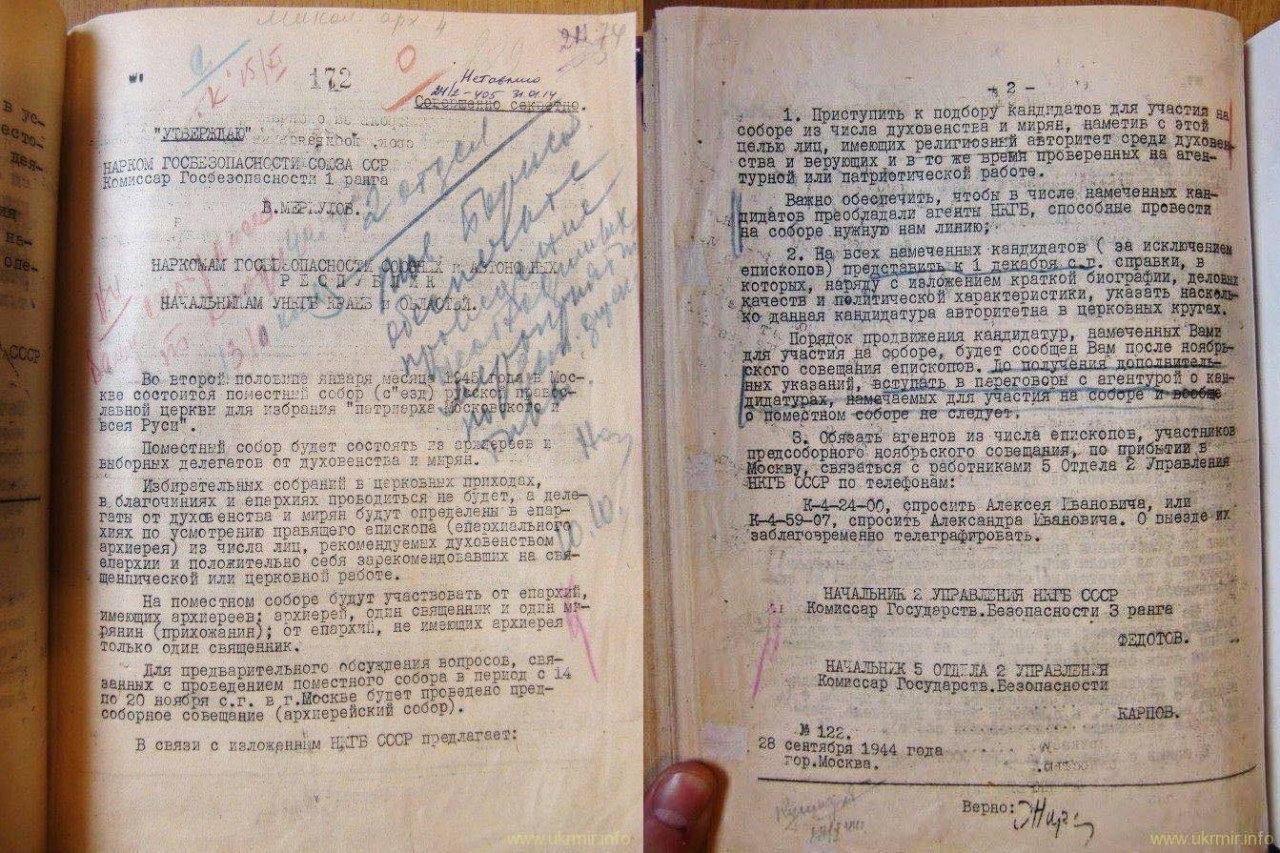 172
Совершенно секретно.
"УТВЕРЖДАЮ"
НАРКОМ ГОСБЕЗОПАСНОСТИ СОЮЗА ССР
Комиссар Госбезопасности 1 ранга
В.МЕРКУЛОВ.
НАРКОМАМ ГОСБЕЗОПАСНОСТИ СОЮЗНЫХ и АВТОНОМНЫХ
РЕСПУБЛИК
НАЧАЛЬНИКАМ УНКГБ КРАЕВ и ОБЛАСТЕЙ.
Во второй половине января месяца 1945 года в Мос-
кве состоится поместный собор (с"езд) русской правос-
лавной церкви для избрания "патриарха Московского и
всея Руси".
Поместный собор будет состоять из архиереев и
выборных делегатов от духовенства и мирян.
Избирательных собраний в церковных приходах,
в благочиниях и епархиях проводиться не будет, а деле-
гаты от духовенства и мирян будут определены в епар-
хиях по усмотрению правящего епископа (епархиального
архиерея) из числа лиц, рекомендуемых духовенством
епархии и положительно себя зарекомендовавших на свя-
щеннической или церковной работе.
На поместном соборе будут участвовать от епархий,
имеющих архиереев: архиерей, один священник и один ми-
рянин (прихожанин); от епархий, не имеющих архиерея
только один священник.
Для предварительного обсуждения вопросов, свя-
занных с проведением поместного собора в период с 14
по 20 ноября с.г. в г.Москве будет проведено пред-
соборное совещание (архиерейский собор).
В связи с изложенным НКГБ СССР предлагает:
www.ukrmir.info
- 2 -
1. Приступить к подбору кандидатов для участия на
соборе из числа духовенства и мирян, наметив с этой
целью лиц, имеющих религиозный авторитет среди духовен-
ства и верующих и в то же время проверенных на аген-
турной или патриотической работе.
Важно обеспечить, чтобы в числе намеченных кан-
дидатов преобладали агенты НКГБ, способные провести
на соборе нужную нам линию;
2. На всех намеченных кандидатов ( за исключением
епископов) представить к 1 декабря с.г. справки, в
которых, наряду с изложением краткой биографии, деловых
качеств и политической характеристики, указать насколь-
ко данная кандидатура авторитетна в церковных кругах.
Порядок продвижения кандидатур, намеченных Вами
для участия на соборе, будет сообщен Вам после ноябрь-
ского совещания епископов. До получения дополнитель-
ных указаний, вступать в переговоры с агентурой о кан-
дидатурах, намечаемых для участия на соборе и вообще
о поместном соборе не следует.
3. Обязать агентов из числа епископов, участников
предсоборного ноябрьского совещания, по прибытии в
Москву, связаться с работниками 5 Отдела 2 Управления
НКГБ СССР по телефонам:
К-4-24-00, спросить Алексея Ивановича, или
К-4-59-07, спросить Александра Ивановича. О выезде их
заблаговременно телеграфировать.
НАЧАЛЬНИК 2 УПРАВЛЕНИЯ НКГБ СССР
Комиссар Государств.Безопасности 3 ранга
ФЕДОТОВ.
НАЧАЛЬНИК 5 ОТДЕЛА 2 УПРАВЛЕНИЯ
Комиссар Государств.Безопасности
КАРПОВ.
№ 122.
28 сентября 1944 года
гор.Москва.
Верно:
www.ukrmir.info